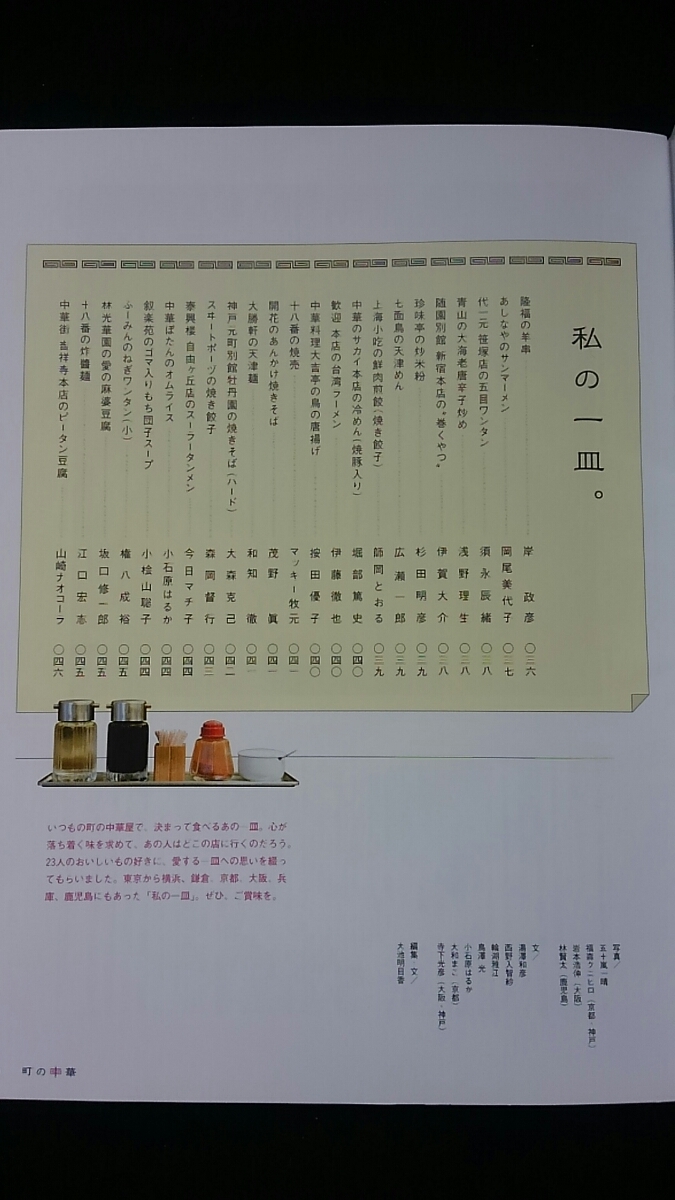 私の一皿。
隆福の羊串 岸 政彦 〇三六
あしなやのサンマーメン 岡尾美代子 〇三七
代一元 笹塚店の五目ワンタン 須永辰緒 〇三八
青山の大海老唐辛子炒め 浅野理生 〇三八
随園別館 新宿本店の〝巻くやつ〟 伊賀大介 〇三八
珍味亭の炒米粉 杉田明彦 〇三九
七面鳥の天津めん 広瀬一郎 〇三九
上海小吃の鮮肉煎餃(焼き餃子) 師岡とおる 〇三九
中華のサカイ本店の冷めん(焼豚入り) 堀部篤史 〇四〇
歓迎 本店の台湾フーメン 伊藤徹也 〇四〇
中華料理大吉亭の鳥の唐揚げ 按田優子 〇四〇
十八番の焼売 マッキー牧元 〇四一
開花のあんかけ焼きそば 茂野 眞 〇四一
大勝軒の天津麺 和知 徹 〇四一
神戸元町別館牡丹園の焼きそば(ハード) 大森克己 〇四二
スヰートポーヅの焼き餃子 森岡督行 〇四三
泰興楼 自由ヶ丘店のスーラータンメン 今日マチ子 〇四四
中華ぼたんのオムライス 小石原はるか 〇四四
叙楽苑のゴマ入りもち団子スープ 小桧山聡子 〇四四
ふーみんのねぎワンタン(小) 権八成裕 〇四五
林光華園の愛の麻婆豆腐 坂口修一郎 〇四五
十八番の炸醬麺 江口宏志 〇四五
中華街 吉祥寺本店のピータン豆腐 山崎ナオコーラ 〇四六
いつもの町の中華屋で、決まって食べるあの一皿。心が
落ち着く味を求めて、あの人はどこの店に行くのだろう。
23人のおいしいもの好きに、愛する一皿への思いを綴っ
てもらいました。東京から横浜、鎌倉、京都、大阪、兵
庫、鹿児島にもあった「私の一皿」。ぜひ、ご賞味を。
写真/
五十嵐一晴
福森クニヒロ(京都・神戸)
岩本浩伸(大阪)
林賢太(鹿児島)
文/
湯澤和彦
西野入智紗
輪湖雅江
鳥澤 光
小石原はるか
大和まこ(京都)
寺下光彦(大阪・神戸)
編集・文/
大池明日香
町の中華